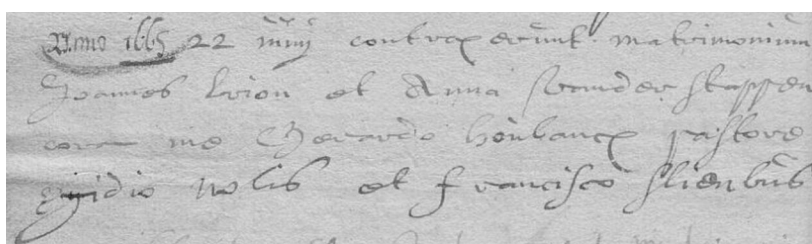 Anno 1665 22 contraxerunt matrimonium
Joannes et Anna vander stappen
coram me Gerardo pastore
egidio nolis et francisco